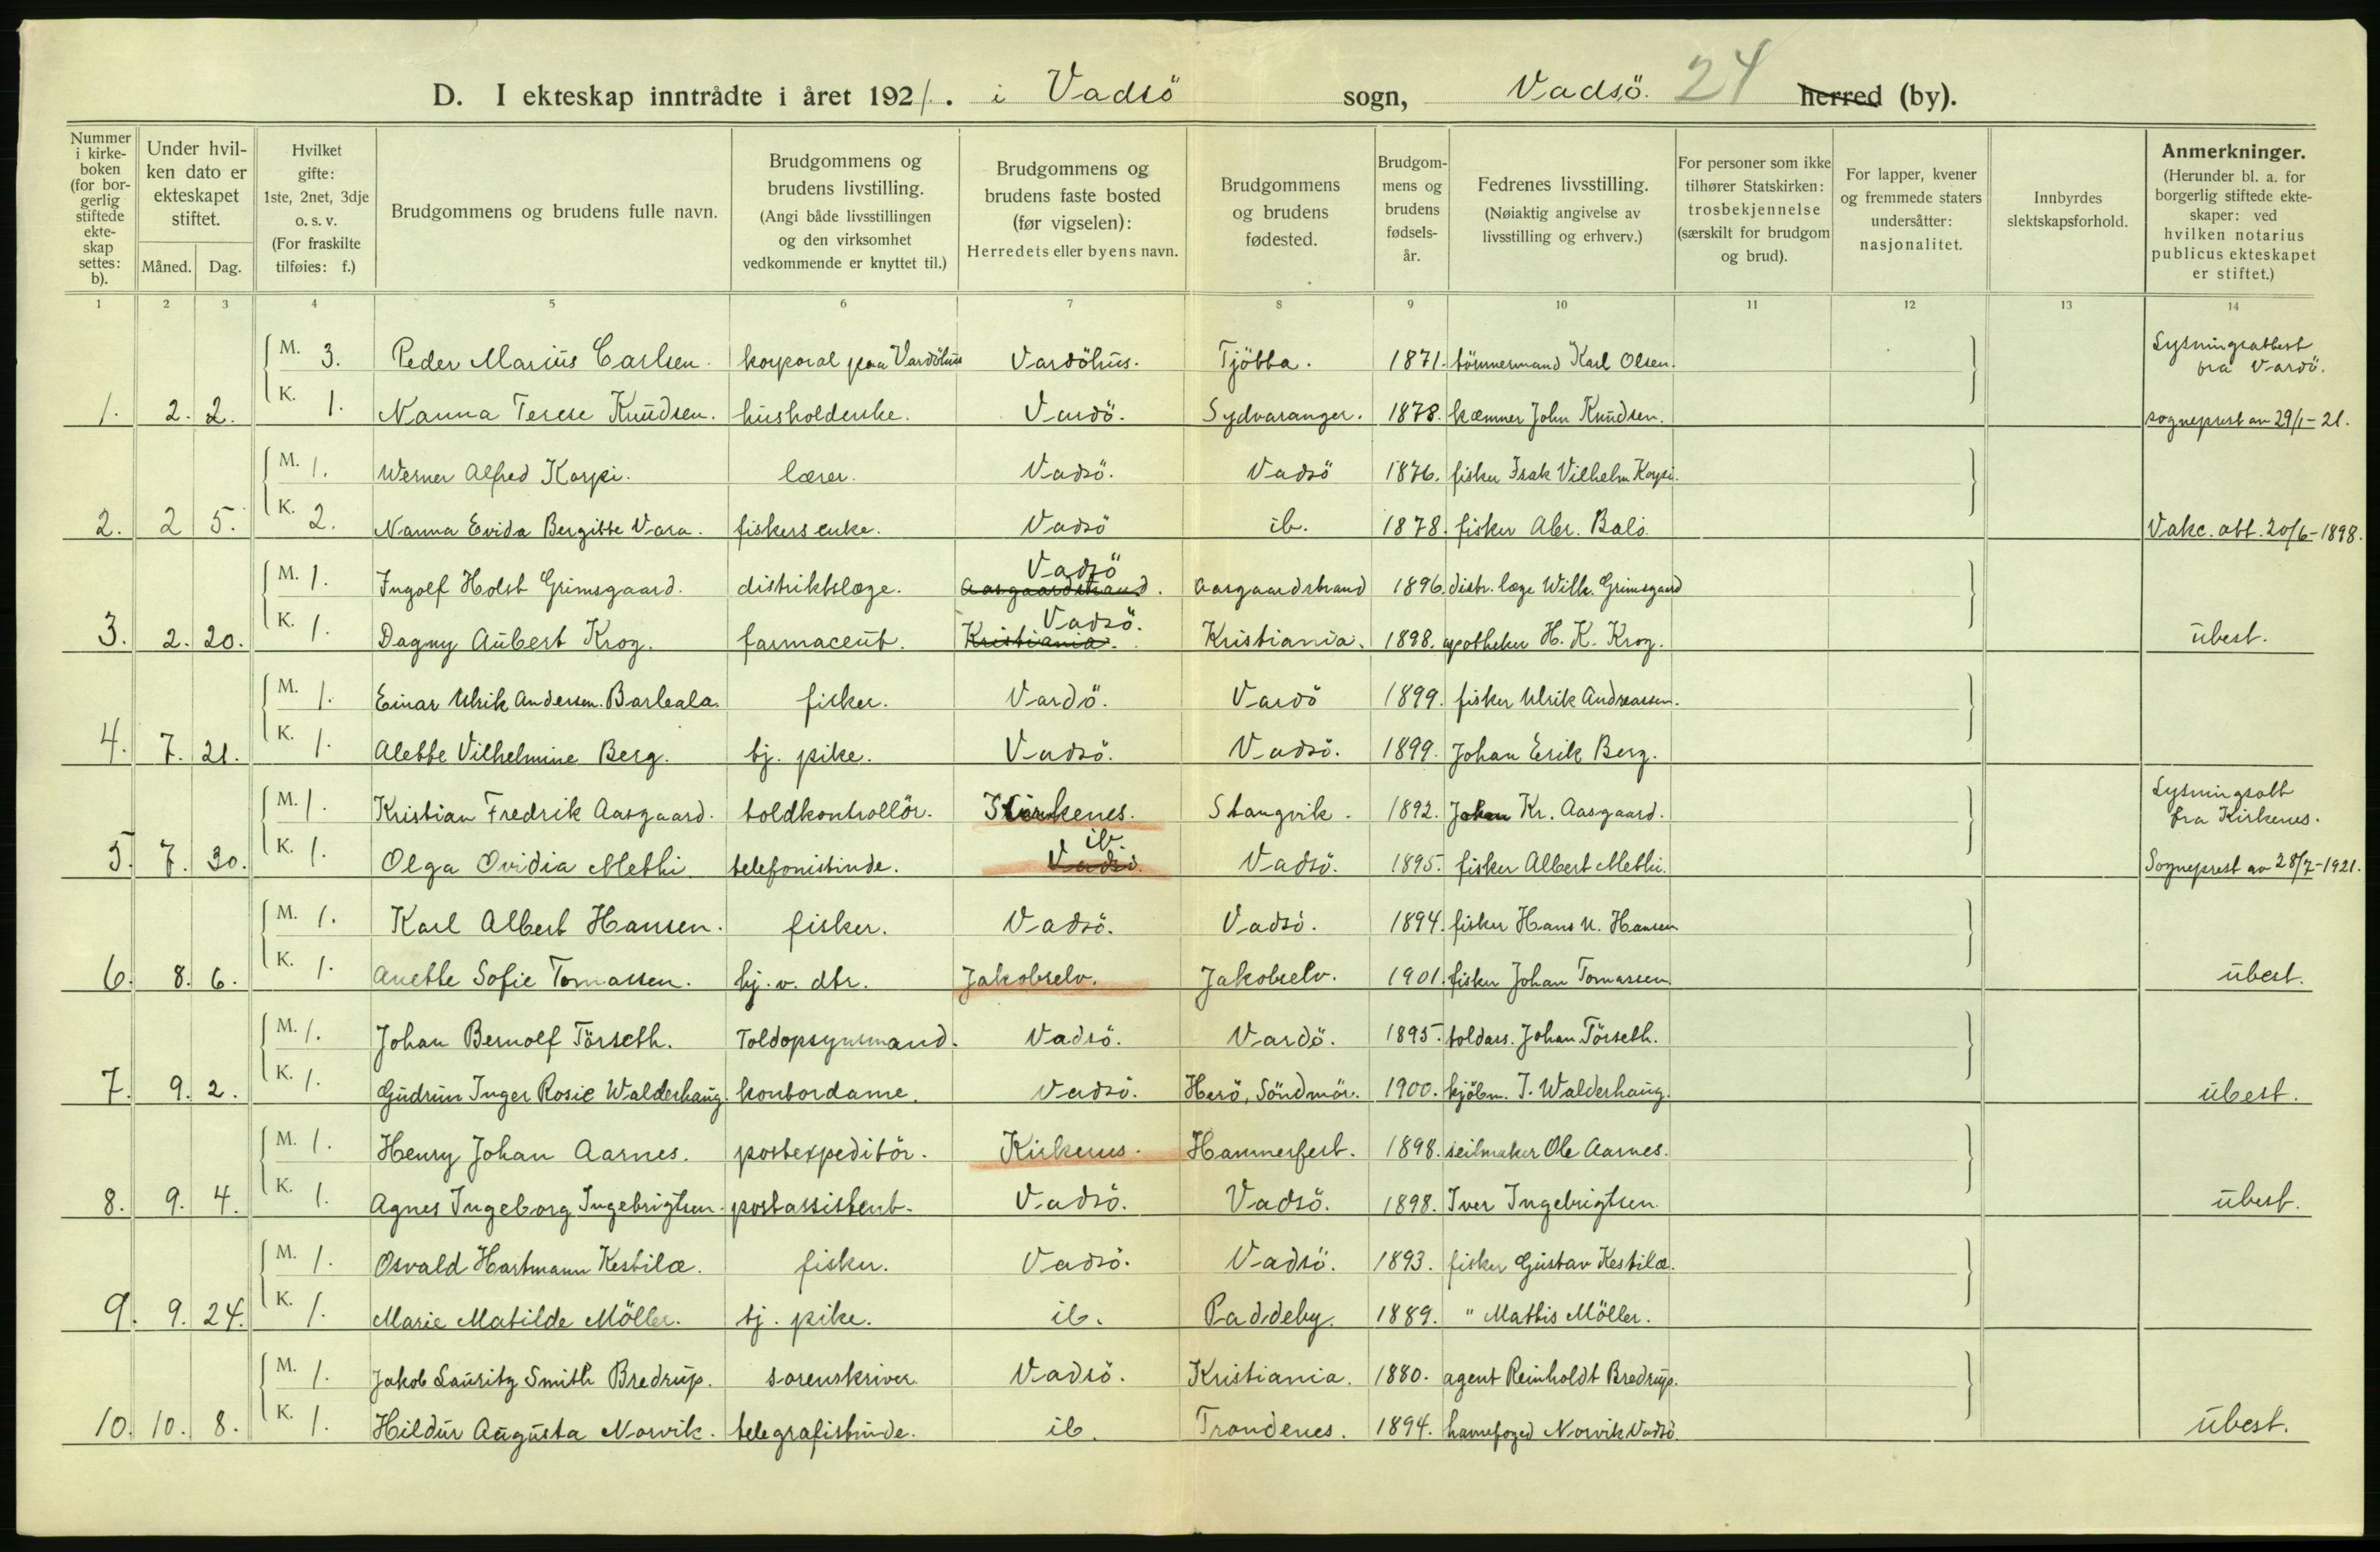 D. I ekteskap inntrådte i året 1921. i Vadsö sogn, Vadsö. 24 herred (by).
Nummer i kirke-boken (for bor-gerlig stiftede ekte-skap settes: b).
Under hvil-ken dato er ekteskapet stiftet.
Måned. Dag.
Hvilket gifte: 1ste, 2net, 3dje o. s. v. (For fraskilte tilføies: f.)
Brudgommens og brudens fulle navn.
Brudgommens og brudens livstilling. (Angi både livsstillingen og den virksomhet vedkommende er knyttet til.)
Brudgommens og brudens faste bosted (før vigselen): Herredets eller byens navn.
Brudgommens og brudens fødested.
Brudgom-mens og brudens fødsels-år.
Fedrenes livsstilling. (Nøiaktig angivelse av livsstilling og erhverv.)
For personer som ikke tilhører Statskirken: trosbekjennelse (særskilt for brudgom og brud).
For lapper, kvener og fremmede staters undersåtter: nasjonalitet.
Innbyrdes slektskapsforhold.
Anmerkninger. (Herunder bl. a. for borgerlig stiftede ekte-skaper: ved hvilken notarius publicus ekteskapet er stiftet.)
1 2 3 4 5 6 7 8 9 10 11 12 13 14
M. 3. Peder Marius Carlsen. korporal paa Vardöhus Vardöhus. Tjötta. 1871. tömmermand Karl Olsen. Lysningsattest fra Vardö.
1. 2. 2. K. 1. Nanna Terese Knudsen. husholderske. Vardö. Sydvaranger. 1878. kæmner John Knudsen. sogneprest av 29/1-21.
M. 1. Werner Alfred Karpi. lærer. Vadsö. Vadsö 1876. fisker Isak Vilhelm Karpi.
2. 2 5. K. 2. Nanna Evida Bergitte Vara. fiskers enke. Vadsö ib. 1878. fisker Abr. Balo. Vakc. att. 20/6-1898.
M. 1. Ingolf Holst Grimsgaard. distriktslæge. Aasgaardstrand. Vadsö Aasgaardstrand 1896. distr. læge Wilh. Grimsgaard
3. 2. 20. K. 1. Dagny Aubert Krog. farmaceut. Kristiania. Vadsö. Kristiania. 1898. apotheker H. K. Krog. ubest.
M. 1. Einar Ulrik Andersen Barleala. fisker. Vardö. Vardö 1899. fisker Ulrik Andreassen.
4. 7. 21. K. 1. Alette Vilhelmine Berg. tj. pike. Vadsö. Vadsö. 1899. Johan Erik Berg.
M. 1. Kristian Fredrik Aasgaard. toldkontrollör. Kirkenes. Stangvik. 1892. Johan Kr. Aasgaard. Lysningsatt fra Kirkenes.
5. 7. 30. K. 1. Olga Ovidia Methi. telefonistinde. Vadsö. ib. Vadsö. 1895. fisker Albert Methi. Sogneprest av 28/7-1921.
M. 1. Karl Albert Hansen. fisker. Vadsö. Vadsö. 1894. fisker Hans U. Hansen
6. 8. 6. K. 1. Anette Sofie Tomassen. hj. v. dtr. Jakobselv. Jakobselv. 1901. fisker Johan Tomassen. ubest.
M. 1. Johan Bernolf Törseth. Toldopsynsmand. Vadsö. Vardö. 1895. toldass. Johan Törseth.
7. 9. 2. K. 1. Gudrun Inger Rosie Walderhaug. kontordame. Vadsö. Herö, Söndmör. 1900. kjöbm. I. Walderhaug. ubest.
M. 1. Henry Johan Aarnes. postexpeditör. Kirkenes. Hammerfest. 1898. seilmaker Ole Aarnes.
8. 9. 4. K. 1. Agnes Ingeborg Ingebrigtsen. postassistent. Vadsö. Vadsö. 1898. Iver Ingebrigtsen. ubest.
M. 1. Osvald Hartmann Kestilæ. fisker. Vadsö. Vadsö. 1893. fisker Gustav Kestilæ.
9. 9. 24. K. 1. Marie Matilde Möller. tj. pike. ib. Paddeby. 1889. " Mattis Möller.
M. 1. Jakob Lauritz Smith Bredrup. sorenskriver. Vadsö. Kristiania. 1880. agent Reinholdt Bredrup.
10. 10. 8. K. 1. Hildur Augusta Norvik. telegrafistinde. ib. Trondenes. 1894. havnefoged Norvik Vadsö. ubest.